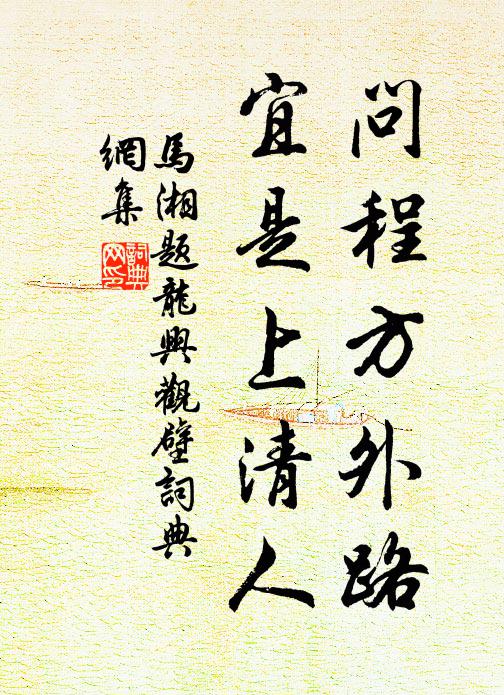 問程方外路
宜是上清人
馬湘題龍興觀壁詞典
網集
詞典
网印